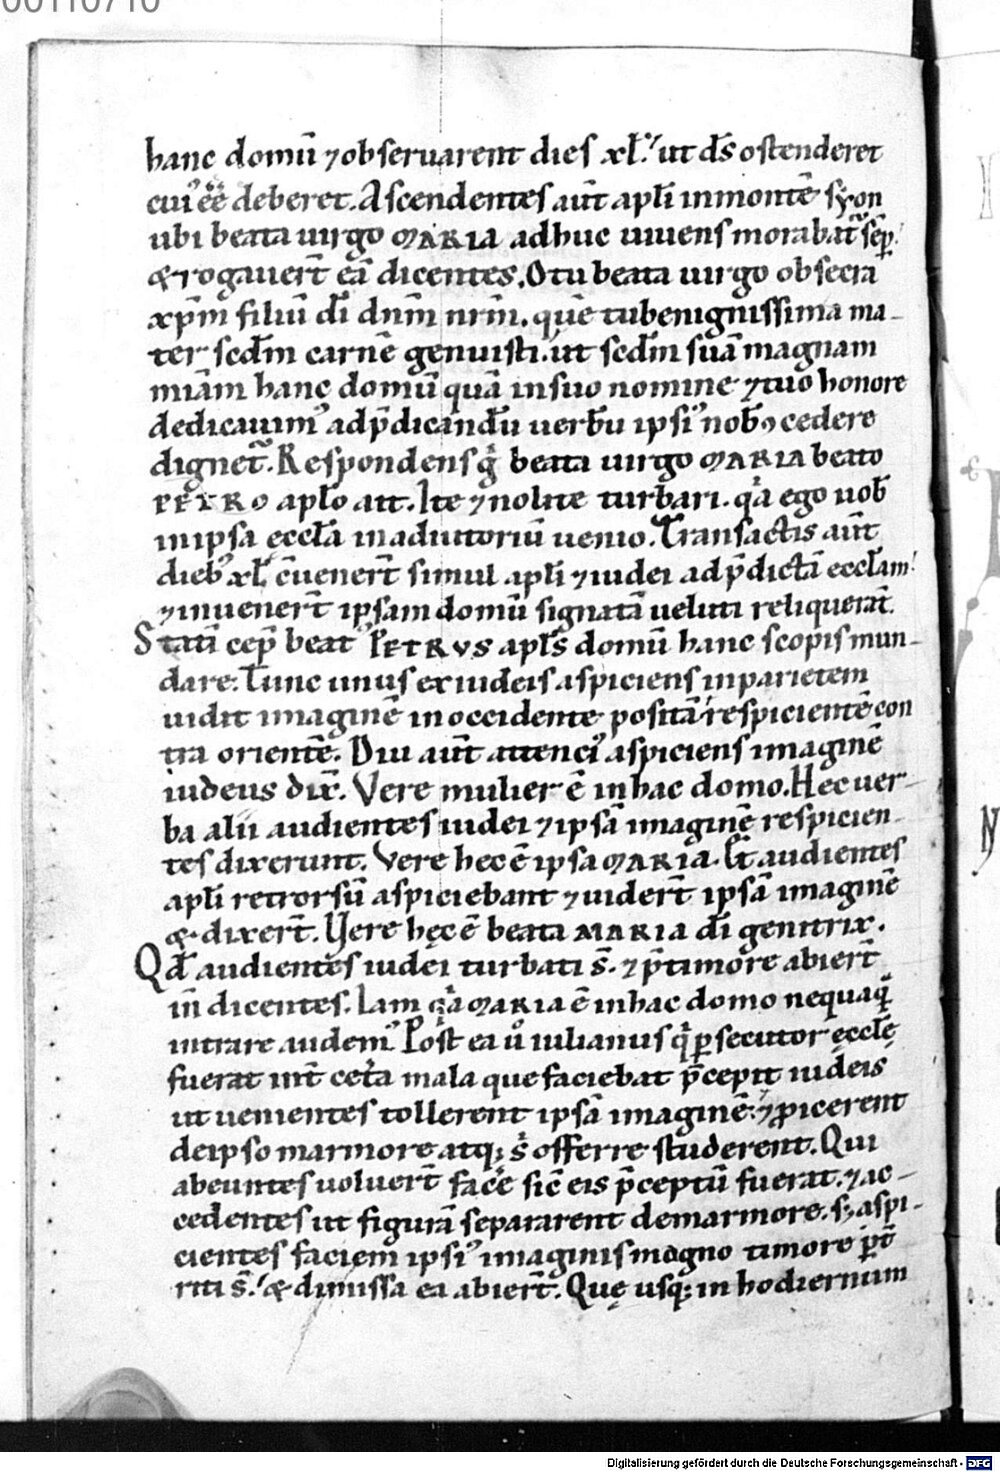 00110710
hanc domū ⁊ obseruarent dies xl. ut ds̄ ostenderet
cui᷒ eē deberet. Ascendentes aūt apl̄i inmontē syon
ubi beata uirgo MARIA adhuc uiuens morabat᷑ sēp.
& rogauer̄t eā dicentes. O tu beata uirgo obsecra
xp̄m filiū dī dn̄m nr̄m. quē tu benignissima ma-
ter scd̄m carnē genuisti. ut scd̄m suā magnam
miām hanc domū quā insuo nomine ⁊ tuo honore
dedicauim᷒ ad p̄dicandū uerbū ipsi᷒ nob̄ ꝯcedere
dignet᷑. Respondens g̊ beata uirgo MARIA beato
PETRO apl̄o ait. Ite ⁊ nolite turbari. qͣ ego uob̄
inipsa eccl̄a inadiutoriū uenio. Transactis aūt
dieb᷒ xl. c̄uener̄t simul apl̄i ⁊ iudei ad p̄dictā eccl̄am.
⁊ inuener̄t ipsam domū signatā ueluti reliquerāt.
Statī cep̄ beat᷒ PETRVS apl̄s domū hanc scopis mun-
dare. Tunc unus exiudeis aspiciens inparietem
uidit imaginē inoccidente positā respicientē con
tra orientē. Diu aūt attenci᷒ aspiciens imaginē
iudeus dix̄. Vere mulier ē inhac domo. Hec uer-
ba alii audientes iudei ⁊ ipsā imaginē respicien-
tes dixerunt. Vere hec ē ipsa MARIA. Et audientes
apl̄i retrorsū aspiciebant ⁊ uider̄t ipsā imaginē
& dixer̄t. Vere hęc ē beata MARIA dī genitrix.
Qd̄ audientes iudei turbati s̄. ⁊ p̄ timore abier̄t
in̄ dicentes. Iam qͣ MARIA ē inhac domo nequaq̄
intrare audem᷒. Post ea ů iulianus qͥ ꝑsecutor ęccl̄ę
fuerat int̄ cet̄a mala que faciebat p̄cepit iudeis
ut uenientes tollerent ipsā imaginē. ⁊ ꝓicerent
deipso marmore atq; s̊ offerre studerent. Qui
abeuntes uoluer̄t fac̄e sic̄ eis p̄ceptū fuerat. ⁊ ac-
cedentes ut figurā separarent demarmore. s; aspi-
cientes faciem ipsi᷒ imaginis magno timore ꝑt̄
riti s̄. & dimissa ea abier̄t. Quę usq; in hodiernum
Digitalisierung gefördert durch die Deutsche Forschungsgemeinschaft - DFG